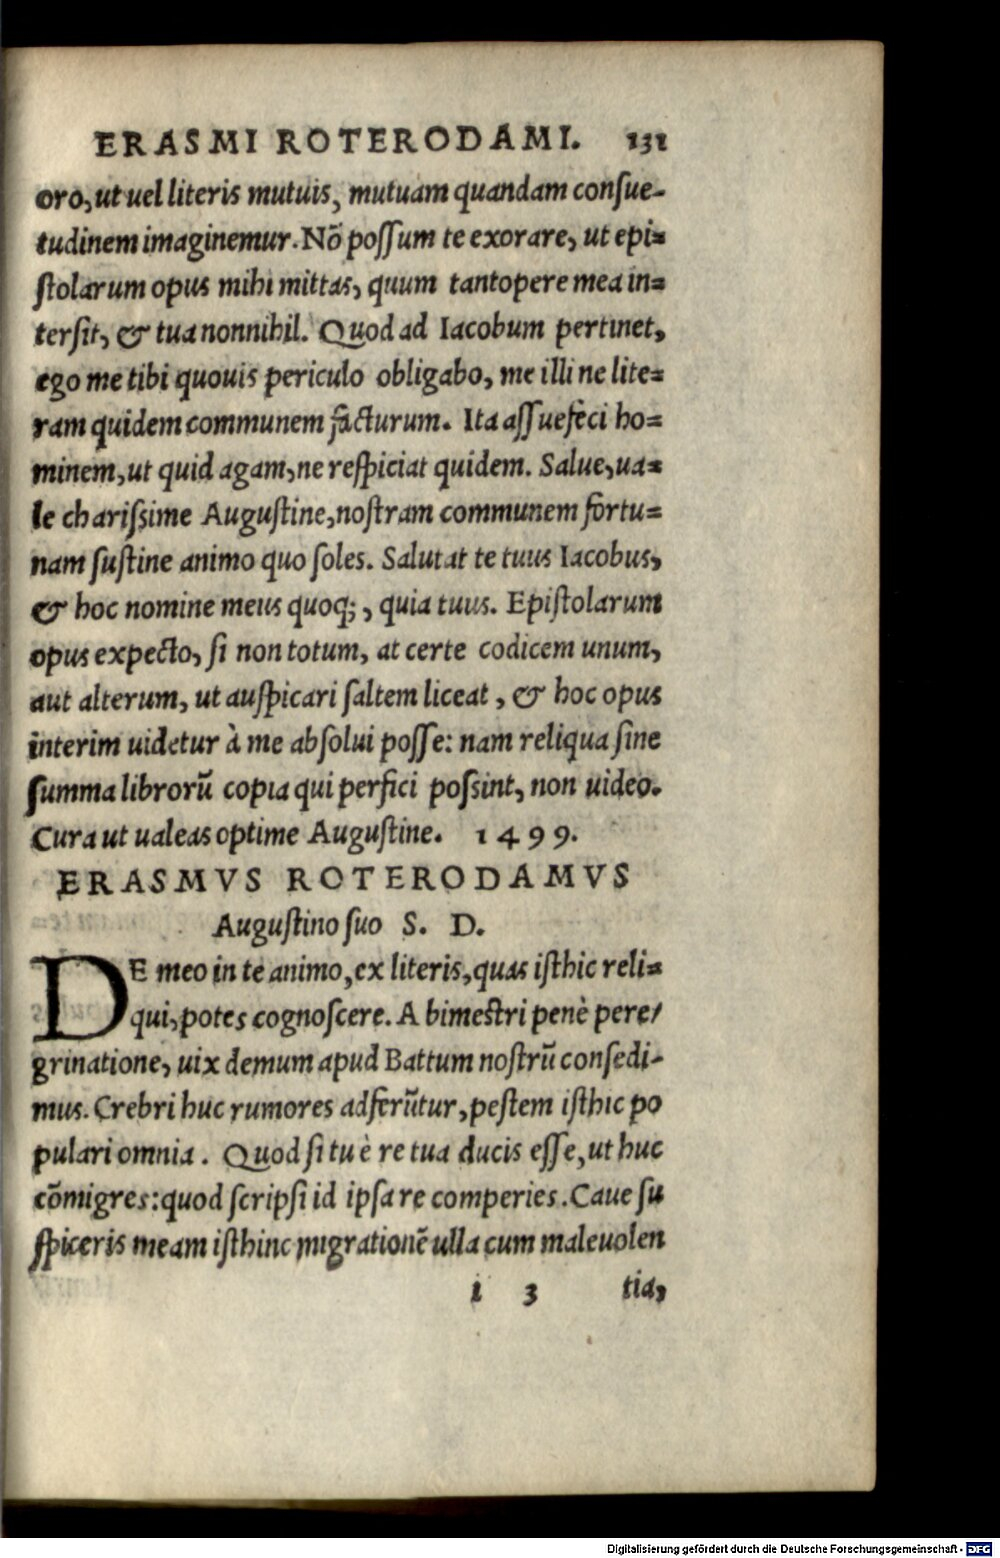 ERASMI ROTERODAMI. 131
oro, ut uel literis mutuis, mutuam quandam consue-
tudinem imaginemur. Nõ possum te exorare, ut epi=
stolarum opus mihi mittas, quum tantopere mea in=
tersit, & tua nonnihil. Quod ad Iacobum pertinet,
ego me tibi quouis periculo obligabo, me illi ne lite=
ram quidem communem facturum. Ita assuefeci ho=
minem, ut quid agam, ne respiciat quidem. Salue, ua=
le charissime Augustine, nostram communem fortu=
nam sustine animo quo soles. Salutat te tuus Iacobus,
& hoc nomine meus quoq;, quia tuus. Epistolarum
opus expecto, si non totum, at certe codicem unum,
aut alterum, ut auspicari saltem liceat, & hoc opus
interim uidetur à me absolui posse: nam reliqua sine
summa librorũ copia qui perfici possint, non uideo.
Cura ut ualeas optime Augustine. 1499.
ERASMVS ROTERODAMVS
Augustino suo S. D.
DE meo in te animo, ex literis, quas isthic reli=
qui, potes cognoscere. A bimestri penè pere/
grinatione, uix demum apud Battum nostrũ consedi-
mus. Crebri huc rumores adferũtur, pestem isthic po
pulari omnia. Quod si tu è re tua ducis esse, ut huc
cõmigres: quod scripsi id ipsa re comperies. Caue su
spiceris meam isthinc migrationẽ ulla cum maleuolen
i 3 tia,
Digitalisierung gefördert durch die Deutsche Forschungsgemeinschaft - DFG